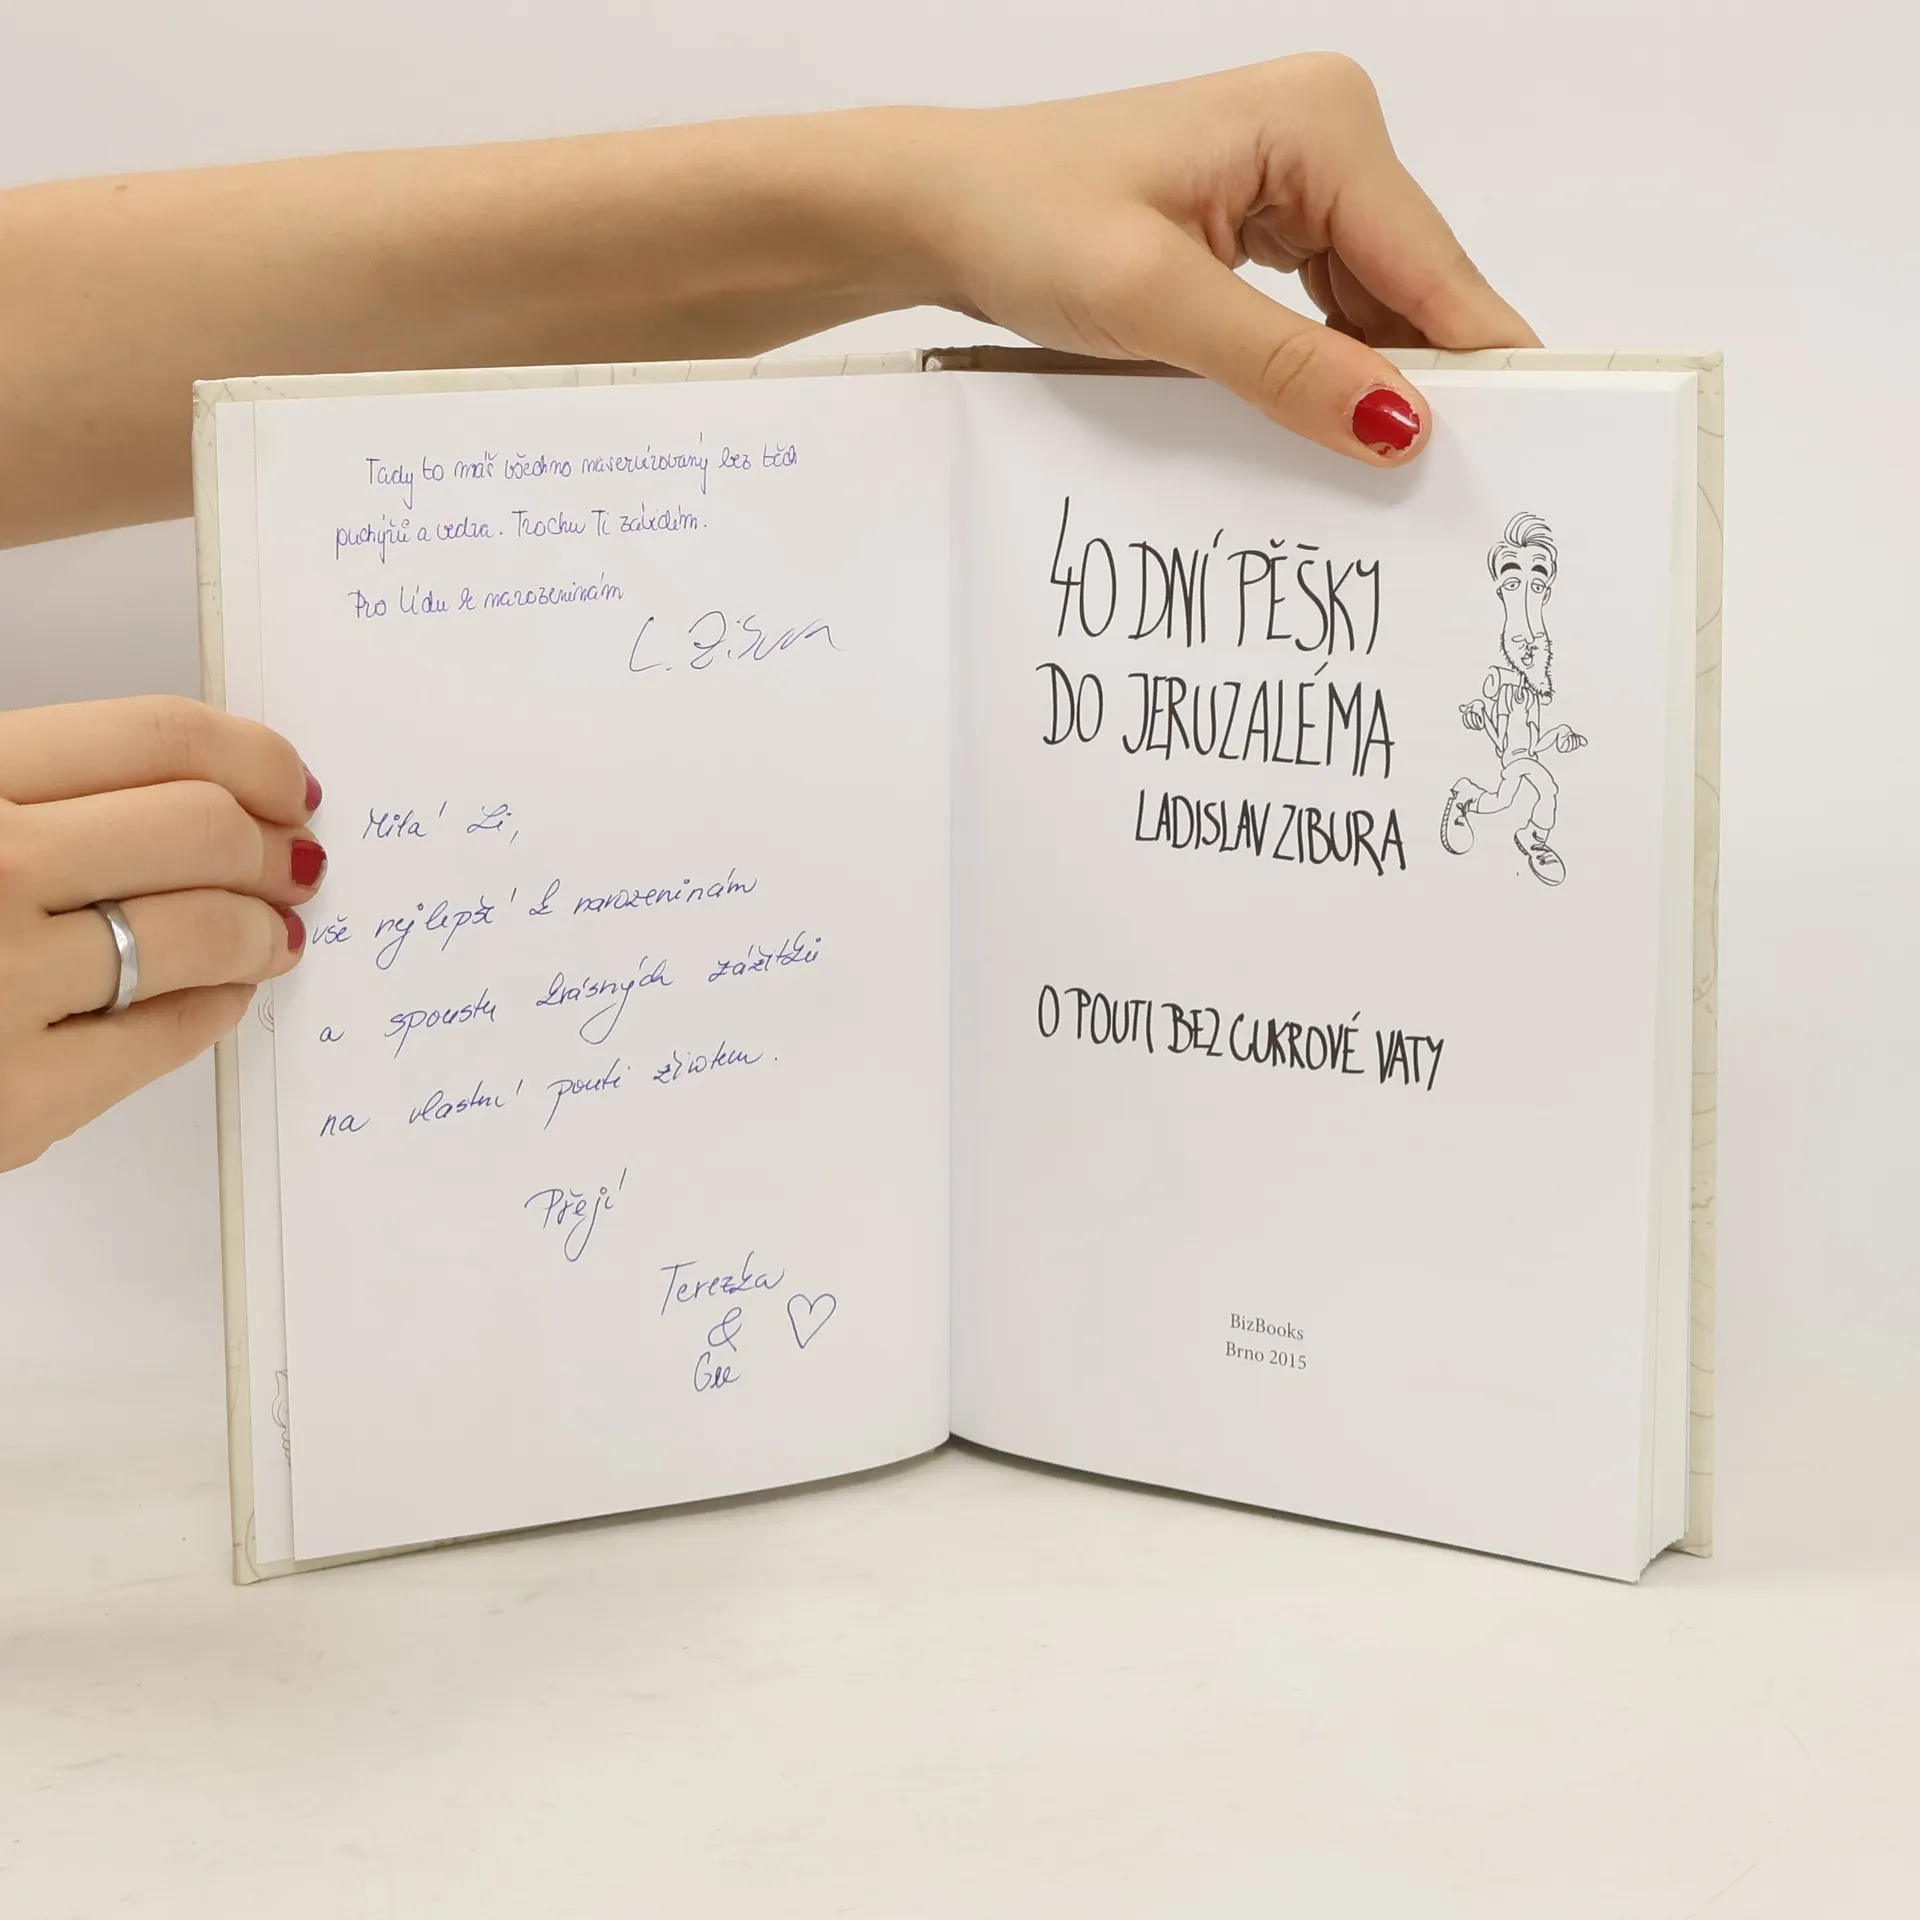 Tady to máš všechno naservírovaný bez těch
puchýřů a vedra. Trochu Ti závidím.
Pro Lídu k narozeninám
L. Zibura
Milá Li,
vše nejlepší k narozeninám
a spoustu krásných zážitků
na vlastní pouti životem.
Přejí
Terezka
&
40 DNÍ PĚŠKY
DO JERUZALÉMA
LADISLAV ZIBURA
O POUTI BEZ CUKROVÉ VATY
BizBooks
Brno 2015